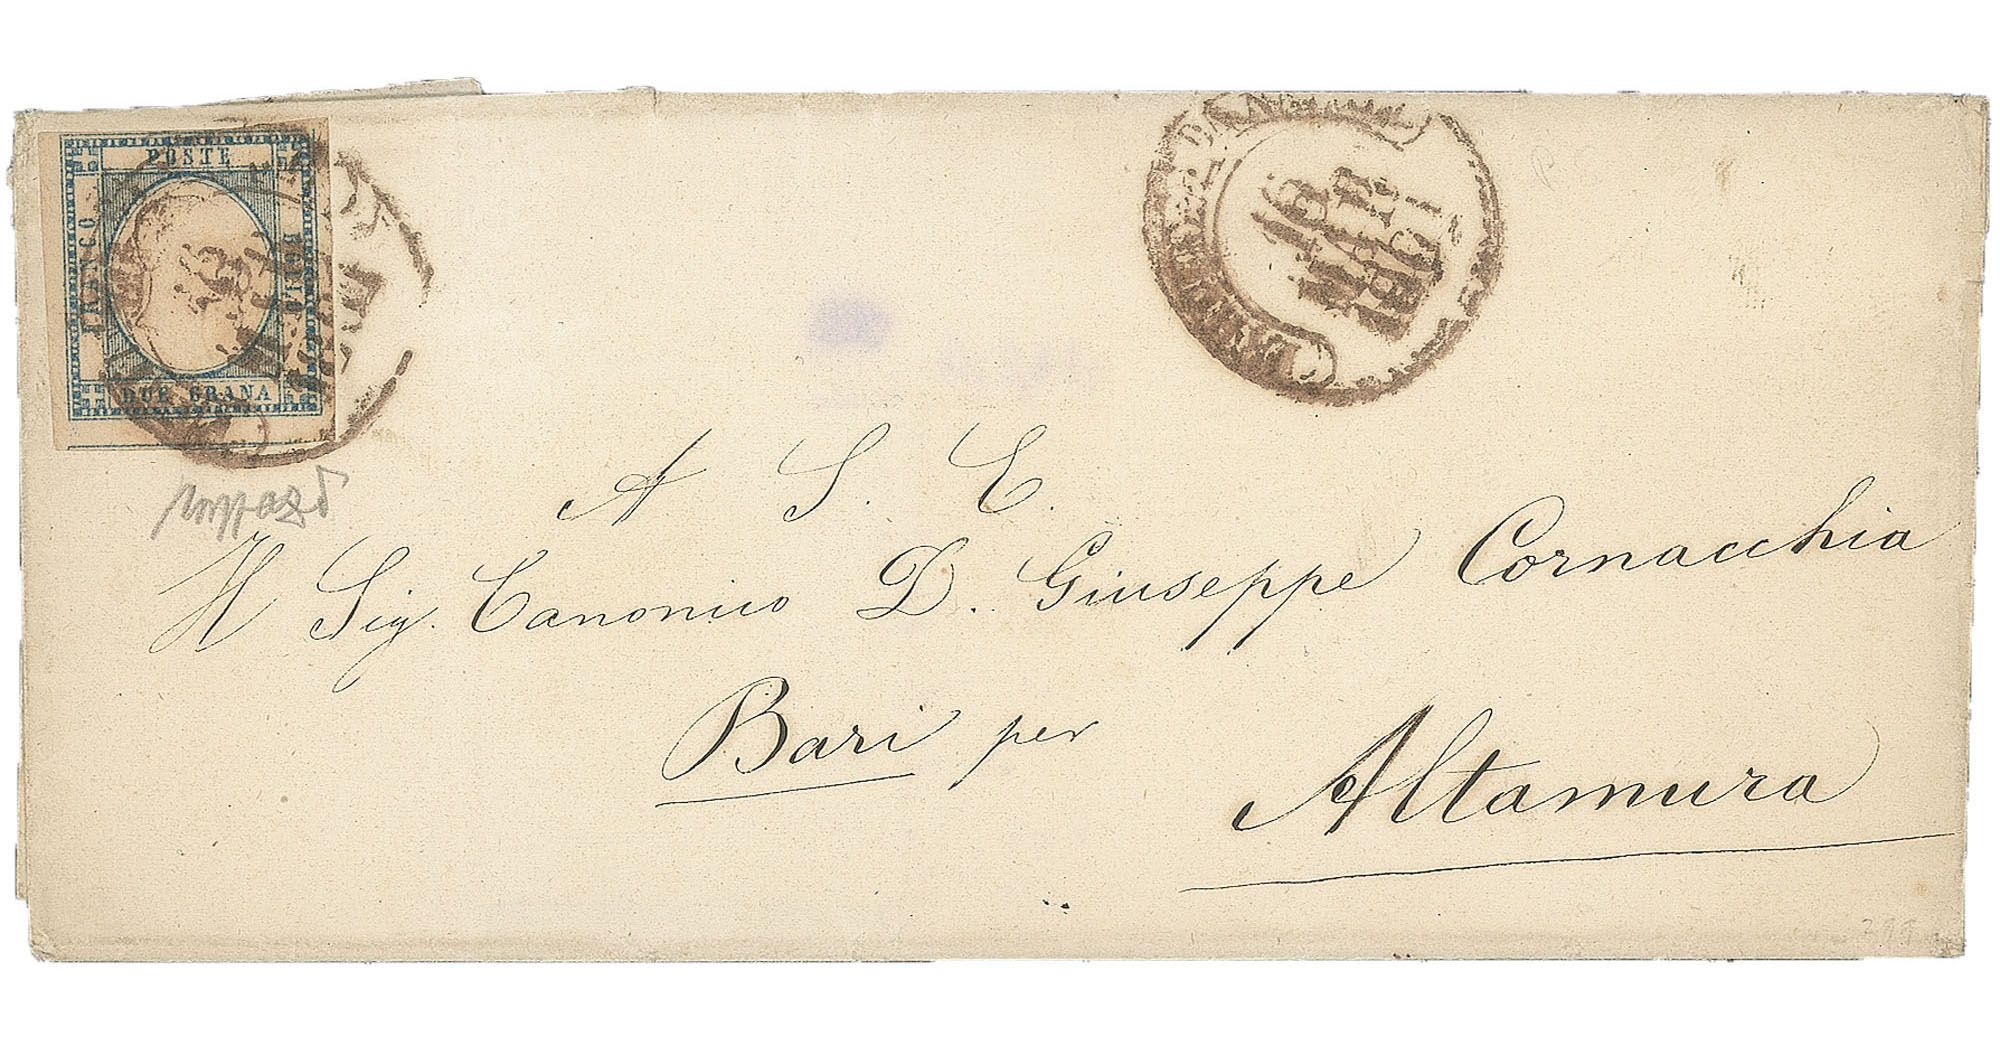 POSTE
FRANCO
BOLLO
DUE GRANA
A S. E.
Il Sig. Canonico D. Giuseppe Cornacchia
Bari per
Altamura